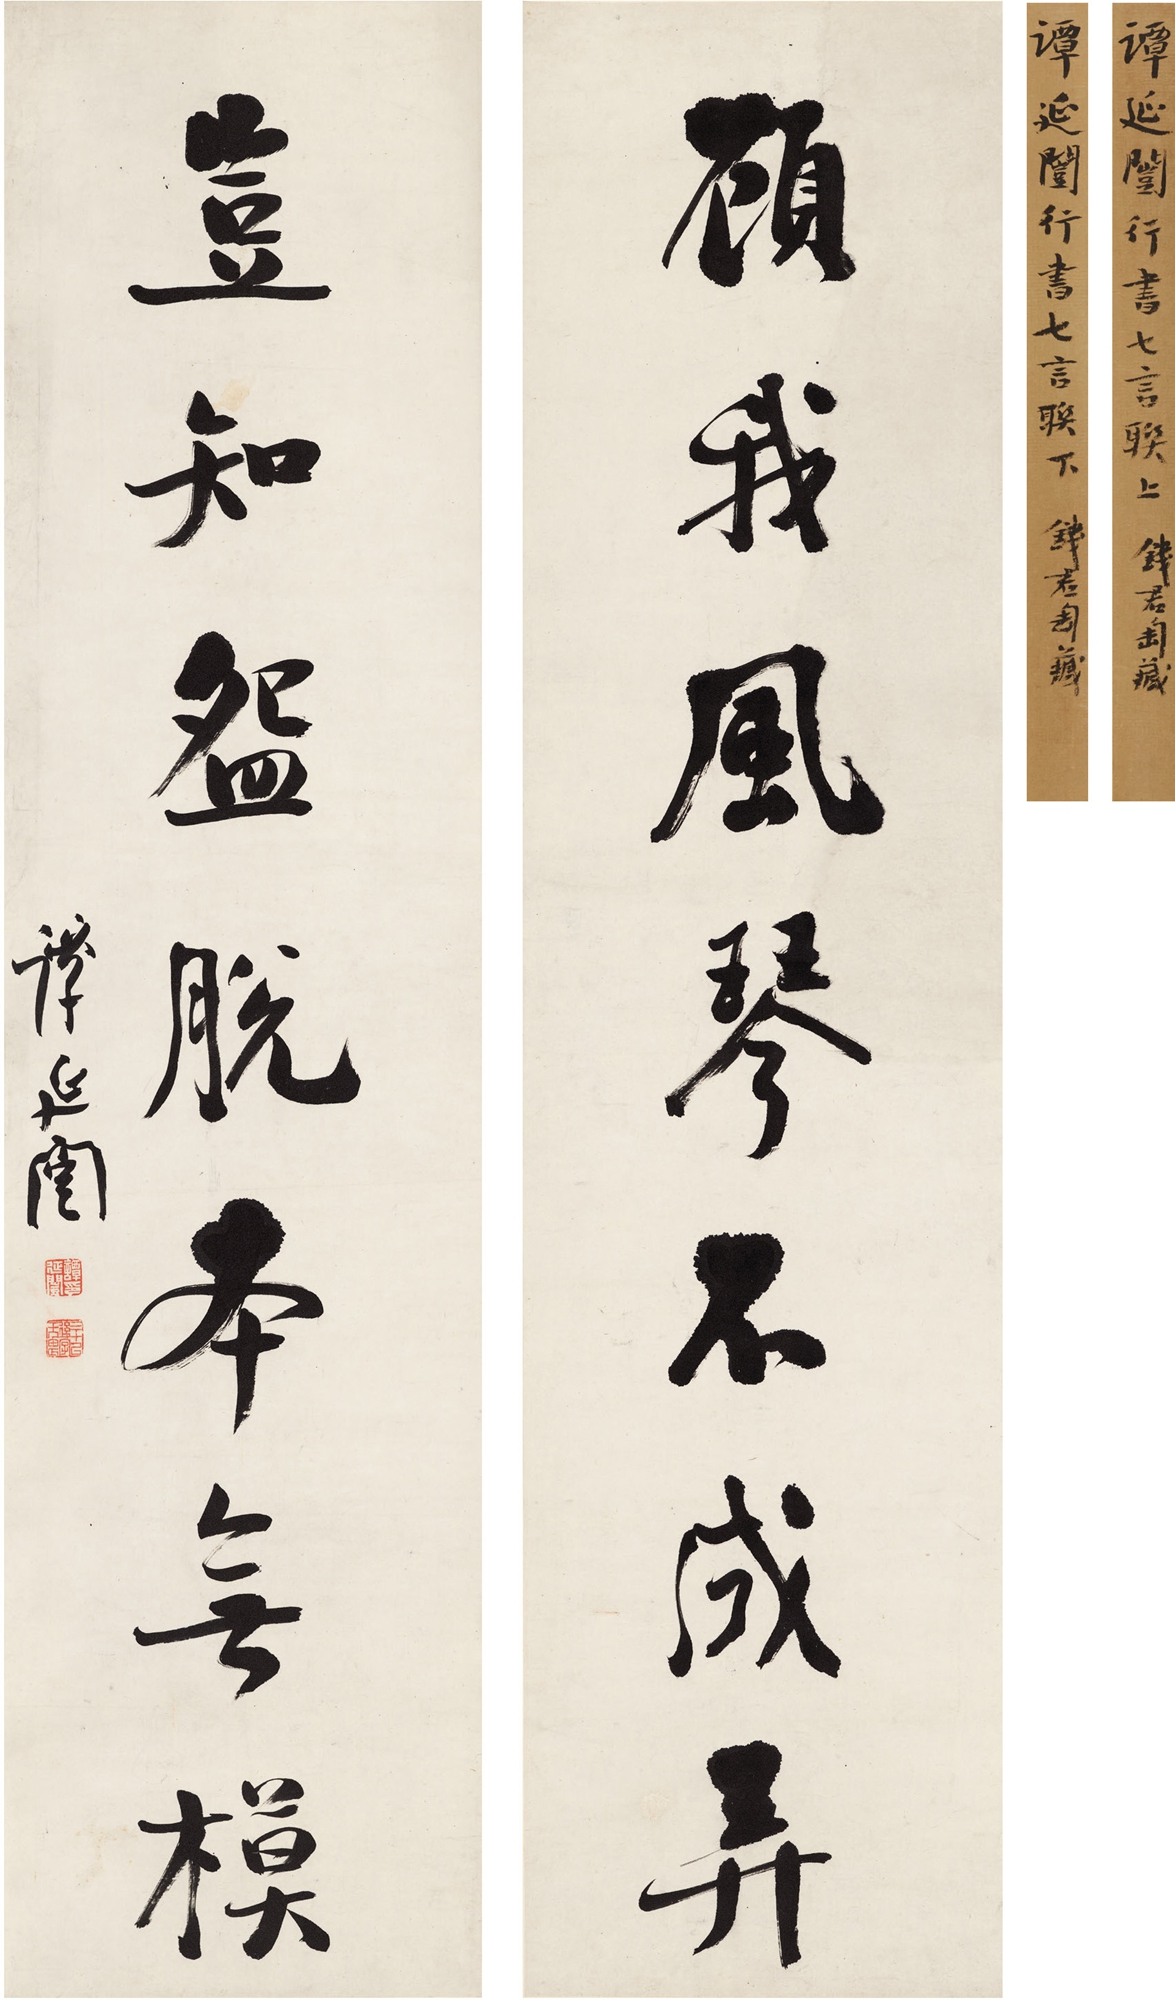 譚延闓行書七言联上 錢君匋藏
譚延闓行書七言联下 錢君匋藏
顧我風琴不成弄
豈知盌脫本無模
譚延闓